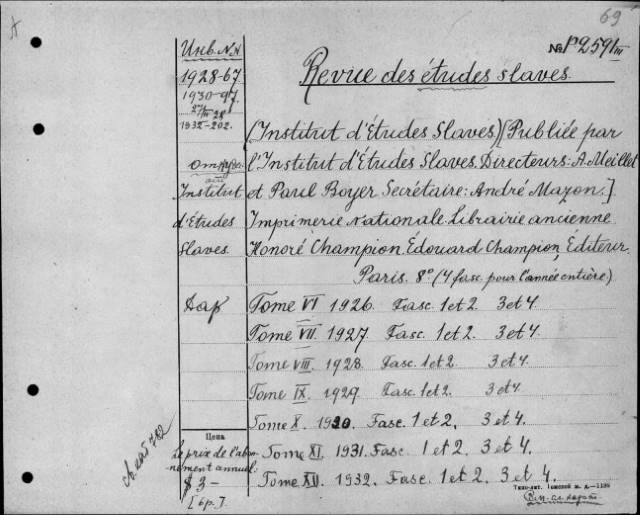 69
Инв. №№
№ P2591 III
Revue des études slaves
1928-67
1930-97
27/III 28
1932-202.
(Institut d'Études Slaves) [Publiée par
l'Institut d'Études Slaves. Directeurs: A. Meillet
Institut et Paul Boyer Secrétaire: André Mazon.]
d'Études Imprimerie Nationale. Librairie ancienne
Slaves. Honoré Champion. Édouard Champion, Éditeur.
Paris. 8° (4 fasc. pour l'année entière)
Дар Tome VI 1926. Fasc. 1 et 2. 3 et 4.
Tome VII. 1927. Fasc. 1 et 2. 3 et 4.
Tome VIII. 1928. Fasc. 1 et 2. 3 et 4.
Tome IX. 1929. Fasc. 1 et 2. 3 et 4.
Tome X. 1930. Fasc. 1 et 2. 3 et 4.
Цена
Le prix de l'abon- Tome XI. 1931. Fasc. 1 et 2. 3 et 4.
nement annuel: Tome XII. 1932. Fasc. 1 et 2. 3 et 4.
$ 3-
Типо-лит. Томской ж. д.